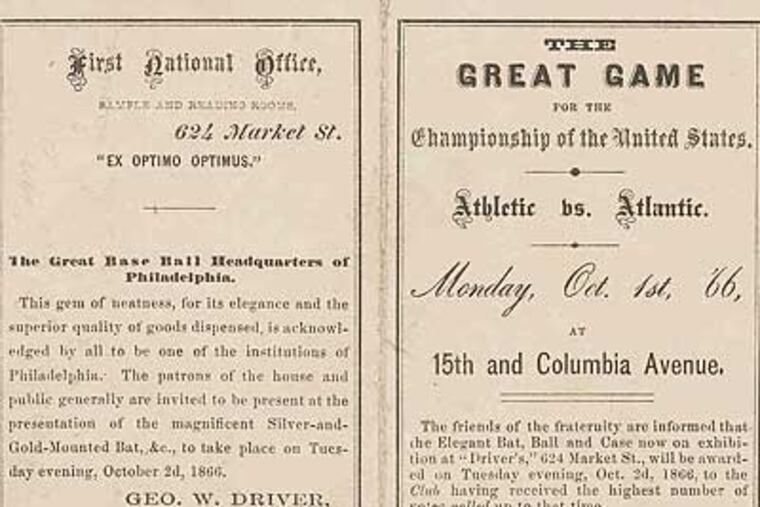 First National Office,
SAMPLE AND READING ROOMS,
624 Market St.
"EX OPTIMO OPTIMUS."
The Great Base Ball Headquarters of
Philadelphia.
This gem of neatness, for its elegance and the
superior quality of goods dispensed, is acknowl-
edged by all to be one of the institutions of
Philadelphia. The patrons of the house and
public generally are invited to be present at the
presentation of the magnificent Silver-and-
Gold-Mounted Bat, &c., to take place on Tues-
day evening, October 2d, 1866.
GEO. W. DRIVER,
THE
GREAT GAME
FOR THE
Championship of the United States.
Athletic vs. Atlantic.
Monday, Oct. 1st, '66,
AT
15th and Columbia Avenue.
The friends of the fraternity are informed that
the Elegant Bat, Ball and Case now on exhibi-
tion at "Driver's," 624 Market St., will be award-
ed on Tuesday evening, Oct. 2d, 1866, to the
Club having received the highest number of
votes polled up to that time.